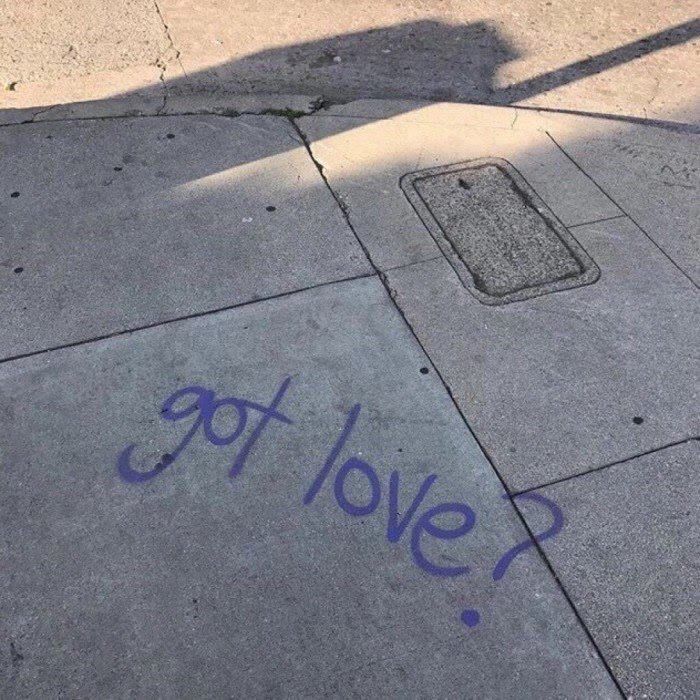 got love?